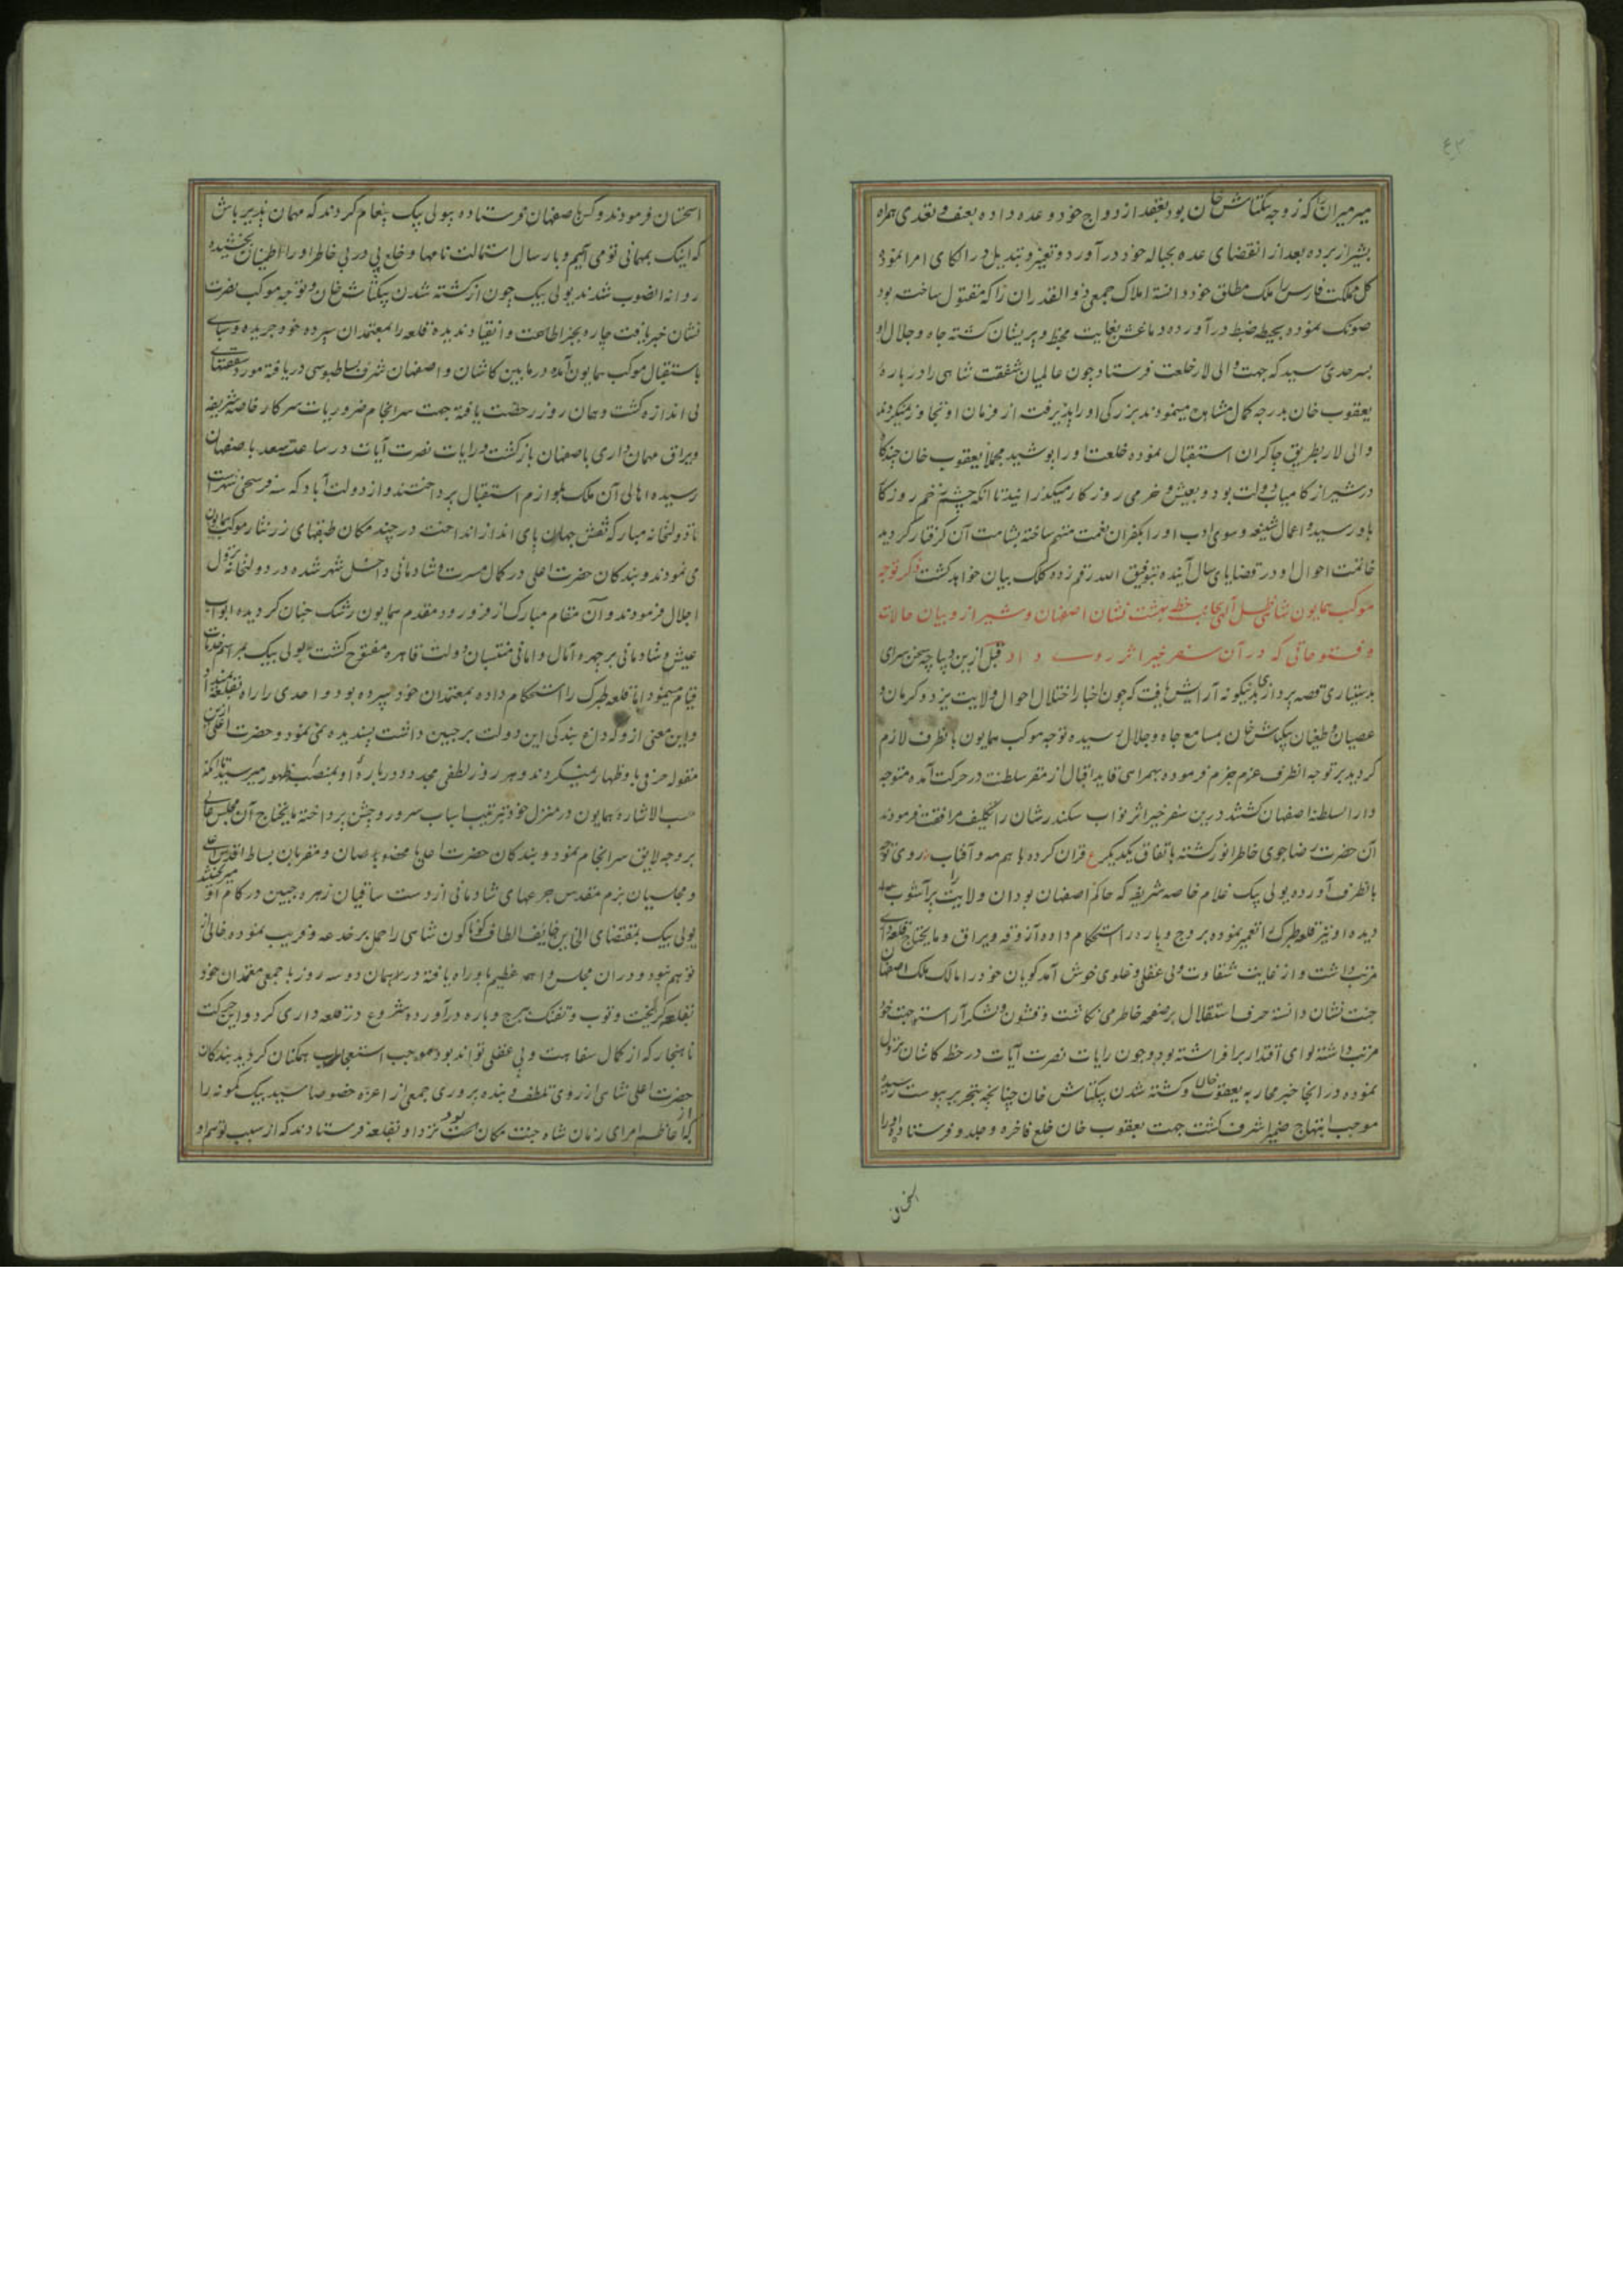 میرمیران را که زوجه بیکتاش خان بود بعقد ازدواج خود وعده داده بعنف و تعدی همراه
بشیراز برده بعد از انقضای عده بحباله خود درآورد و تغییر و تبدیل در الکای امرا نموده
کل مملکت فارس را ملک مطلق خود دانسته املاک جمعی ذوالقدران را که مقتول ساخته بود
نموده بحیطه ضبط درآورده دماغش بغایت مخبط و پریشان گشته جاه و جلال او
بسرحدی رسید که جهت والی لار خلعت فرستاد چون عالمیان شفقت شاهی را درباره
یعقوب خان بدرجه کمال مشاهده مینمودند بزرگی او را پذیرفته از فرمان او تجاوز نمیکردند
والی لار بطریق چاکران استقبال نموده خلعت او را پوشید مجملا یعقوب خان چندگاه
در شیراز کامیاب دولت بود و بعیش و خرمی روزگار میگذرانید تا آنکه چشم زخم روزگار
باو رسیده اعمال شنیعه و سوی ادب او را بکفران نعمت متهم ساخته بشامت آن گرفتار گردید
خاتمت احوال او در قضایای سال آینده بتوفیق الله رقم زده کلک بیان خواهد گشت ذکر توجه
موکب همایون شاهی ظل الهی بجانب خطه بهشت نشان اصفهان و شیراز و بیان حالات
و فتوحاتی که در آن سفر خیر اثر روی داد قبل ازین دیباچه سخن سرای
بدستیاری قصه پردازی بدینگونه آرایش یافت که چون اخبار اختلال احوال ولایت یزد و کرمان و
عصیان و طغیان بیکتاش خان بمسامع جاه و جلال رسیده توجه موکب همایون بآنطرف لازم
گردید بر توجه آنطرف عزم جزم فرموده بهمراهی قاید اقبال از مقر سلطنت در حرکت آمده متوجه
دارالسلطنه اصفهان گشتند درین سفر خیر اثر نواب سکندر شان را تکلیف مرافقت فرمودند
آن حضرت رضاجوی خاطر انور گشته باتفاق یکدیگر ع قران کرده باهم مه و آفتاب روی توجه
بآنطرف آورده یولی بیک غلام خاصه شریفه که حاکم اصفهان بود آن ولایت را پرآشوب
دیده او نیز قلعه طبرک را تعمیر نموده بروج و باره را استحکام داده آزوقه و یراق و مایحتاج قلعه داری
مرتب داشت و از غایت شقاوت و بی عقلی و غلوی خوش آمد گویان خود را مالک ملک اصفهان
جنت نشان دانسته حرف استقلال بر صفحه خاطر می نگاشت و قشون و لشکر آراسته جهت خود
مرتب داشته لوای اقتدار برافراشته بود و چون رایات نصرت آیات در خطه کاشان نزول
نموده در آنجا خبر محاربه یعقوب خان و کشته شدن بیکتاش خان چنانچه بتحریر پیوست رسیده
موجب ابتهاج ضمیر اشرف گشت جهت یعقوب خان خلع فاخره و جلدو فرستاده او را
فرمودند و کس باصفهان فرستاده بیولی بیک پیغام کردند که مهمان پذیر باش
که اینک بمهمانی تو می آییم و بارسال استمالت نامها و خلع پی در پی خاطر او را اطمینان بخشیده
روانه آنصوب شدند یولی بیک چون از کشته شدن بیکتاش خان و توجه موکب نصرت
نشان خبر یافت چاره بجز اطاعت و انقیاد ندیده قلعه را بمعتمدان سپرده خود جریده و سبای
باستقبال موکب همایون آمده در مابین کاشان و اصفهان شرف بساط بوسی دریافته مورد شفقتهای
بی اندازه گشت و همان روز رخصت یافته جهت سرانجام ضروریات سرکار خاصه شریفه
و یراق مهمان داری باصفهان بازگشت و رایات نصرت آیات در ساعت سعد باصفهان
رسیده اهالی آن ملک بلوازم استقبال پرداختند و از دولت آباد که سه فرسخی شهر است
تا دولتخانه مبارکه نقش جهان پای انداز انداخته در چند مکان طبقهای زر نثار موکب همایون
می نمودند و بندگان حضرت اعلی در کمال مسرت و شادمانی داخل شهر شده در دولتخانه نزول
اجلال فرمودند و آن مقام مبارک از فر ورود مقدم همایون رشک جنان گردیده ابواب
عیش و شادمانی بر چهره آمال و امانی منتسبان دولت قاهره مفتوح گشت یولی بیک بمراسم خدمات
قیام مینمود اما قلعه طبرک را استحکام داده بمعتمدان خود سپرده بود و احدی را راه بقلعه نمیداد
و این معنی ازو که داغ بندگی این دولت بر جبین داشت پسندیده نمی نمود و حضرت اعلی ازین
مقوله حرفی باو اظهار نمیکردند و هر روز لطفی مجدد درباره او بمنصه ظهور میرسید تا آنکه
حسب الاشاره همایون در منزل خود بترتیب اسباب سرور و جشن پرداخته مایحتاج آن مجلس عالی
بر وجه لایق سرانجام نمود و بندگان حضرت اعلی با مخصوصان و مقربان بساط اقدس
و مجلسیان بزم مقدس جرعهای شادمانی از دست ساقیان زهره جبین در کام او میریختند
یولی بیک بمقتضای الخاین خایف الطاف گوناگون شاهی را حمل بر خدعه و فریب نموده خالی از
توهم نبود و در آن مجلس واهمه عظیم باو راه یافته در همان دو سه روز با جمعی معتمدان خود
بقلعه گریخت و توپ و تفنگ ببرج و باره درآورده شروع در قلعه داری کرد و این حرکت
ناهنجار که از کمال سفاهت و بی عقلی تواند بود موجب استعجاب همگنان گردید بندگان
حضرت اعلی شاهی از روی تلطف و بنده پروری جمعی از اعزه خصوصا سید بیک کمونه را
که از اعاظم امرای زمان شاه جنت مکان بود نزد او بقلعه فرستادند که از سبب توهم او